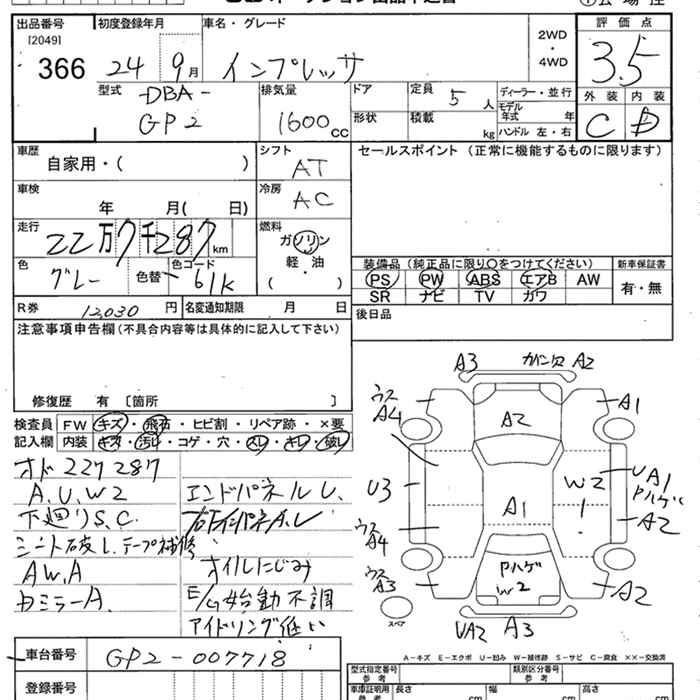 出品番号
[2049]
366
初度登録年月
24 9月
車名・グレード
インプレッサ
2WD
・
4WD
評価点
3.5
外装 内装
C D
型式
DBA-
GP2
排気量
1600cc
ドア
形状
定員 5人
積載 kg
ディーラー・並行
モデル年式 年
ハンドル 左・右
車歴
自家用・( )
シフト
AT
セールスポイント (正常に機能するものに限ります)
車検
年 月( 日)
冷房
AC
走行
22万7千287km
燃料
ガソリン
・
軽・油
( )
色
グレー
色替
色コード
61K
装備品 (純正品に限り○をつけてください)
新車保証書
PS PW ABS エアB AW
SR ナビ TV カワ
有・無
R券 12,030円
名変通知期限 月 日
後日品
注意事項申告欄(不具合内容等は具体的に記入して下さい)
修復歴 有 〔箇所 〕
検査員
記入欄
FW キズ・飛石・ヒビ割・リペア跡・×要
内装 キズ・汚れ・コゲ・穴・スレ・キレ・破レ
オド227287
A.U.W2
下廻りS.C.
シート破レ テープ補修
AW.A
エンドパネルU.
オイルにじみ
E/G始動不調
アイドリング低い
A3 A2
ウス
A4
A1
A2
U3
W2
UA1
Pハゲ
A1
A2
ウス
A4
ウス
A3
Pハゲ
W2
A2
スペア
UA2 A3
車台番号
GP2-007718
登録番号
A-キズ E-エクボ U-凹み W-補修跡 S-サビ C-腐食 ××-交換済
型式指定番号
参考
類別区分番号
参考
車庫証明用
参考
長さ cm
幅 cm
高さ cm